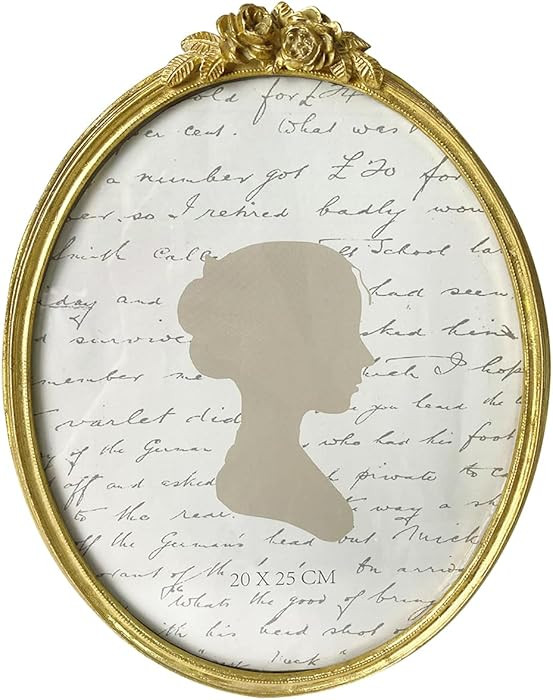 old for £4
per cent. What was
a number got £20 for
so I retired badly
Smith School
day and had seen
d surviv asked him
member me which I hop
varlet did you heard the
of the German who had his foot
off and asked private to
to the rear. way a sh
off the German's head out Nick
of the On arriv
20 X 25 CM
Whats the good of bring
with his head shot o